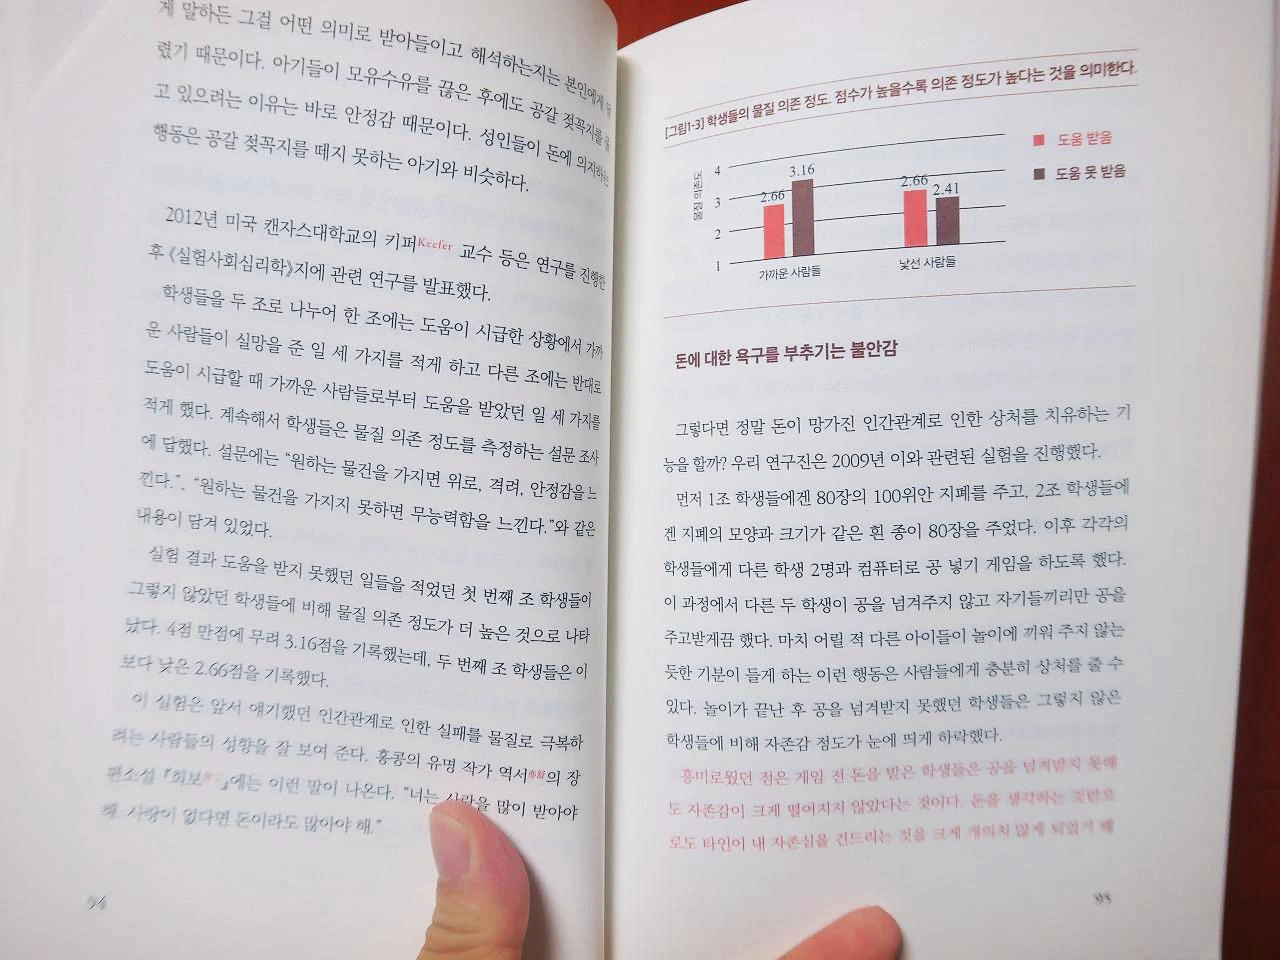 게 말하든 그걸 어떤 의미로 받아들이고 해석하는지는 본인에게 달
렸기 때문이다. 아기들이 모유수유를 끊은 후에도 공갈 젖꼭지를 물
고 있으려는 이유는 바로 안정감 때문이다. 성인들이 돈에 의지하는
행동은 공갈 젖꼭지를 떼지 못하는 아기와 비슷하다.
2012년 미국 캔자스대학교의 키퍼Keefer 교수 등은 연구를 진행한
후 《실험사회심리학》지에 관련 연구를 발표했다.
학생들을 두 조로 나누어 한 조에는 도움이 시급한 상황에서 가까
운 사람들이 실망을 준 일 세 가지를 적게 하고 다른 조에는 반대로
도움이 시급할 때 가까운 사람들로부터 도움을 받았던 일 세 가지를
적게 했다. 계속해서 학생들은 물질 의존 정도를 측정하는 설문 조사
에 답했다. 설문에는 “원하는 물건을 가지면 위로, 격려, 안정감을 느
낀다.”, “원하는 물건을 가지지 못하면 무능력함을 느낀다.”와 같은
내용이 담겨 있었다.
실험 결과 도움을 받지 못했던 일들을 적었던 첫 번째 조 학생들이
그렇지 않았던 학생들에 비해 물질 의존 정도가 더 높은 것으로 나타
났다. 4점 만점에 무려 3.16점을 기록했는데, 두 번째 조 학생들은 이
보다 낮은 2.66점을 기록했다.
이 실험은 앞서 얘기했던 인간관계로 인한 실패를 물질로 극복하
려는 사람들의 성향을 잘 보여 준다. 홍콩의 유명 작가 역서亦舒의 장
편소설 『희보』에는 이런 말이 나온다. “너는 사랑을 많이 받아야
해. 사랑이 없다면 돈이라도 많아야 해.”
94
[그림1-3] 학생들의 물질 의존 정도. 점수가 높을수록 의존 정도가 높다는 것을 의미한다.
도움 받음
도움 못 받음
물질 의존도
4
3
2
1
2.66
3.16
2.66
2.41
가까운 사람들
낯선 사람들
돈에 대한 욕구를 부추기는 불안감
그렇다면 정말 돈이 망가진 인간관계로 인한 상처를 치유하는 기
능을 할까? 우리 연구진은 2009년 이와 관련된 실험을 진행했다.
먼저 1조 학생들에겐 80장의 100위안 지폐를 주고, 2조 학생들에
겐 지폐의 모양과 크기가 같은 흰 종이 80장을 주었다. 이후 각각의
학생들에게 다른 학생 2명과 컴퓨터로 공 넣기 게임을 하도록 했다.
이 과정에서 다른 두 학생이 공을 넘겨주지 않고 자기들끼리만 공을
주고받게끔 했다. 마치 어릴 적 다른 아이들이 놀이에 끼워 주지 않는
듯한 기분이 들게 하는 이런 행동은 사람들에게 충분히 상처를 줄 수
있다. 놀이가 끝난 후 공을 넘겨받지 못했던 학생들은 그렇지 않은
학생들에 비해 자존감 정도가 눈에 띄게 하락했다.
흥미로웠던 점은 게임 전 돈을 받은 학생들은 공을 넘겨받지 못해
도 자존감이 크게 떨어지지 않았다는 것이다. 돈을 생각하는 것만으
로도 타인이 내 자존심을 건드리는 것을 크게 개의치 않게 되었기 때
95